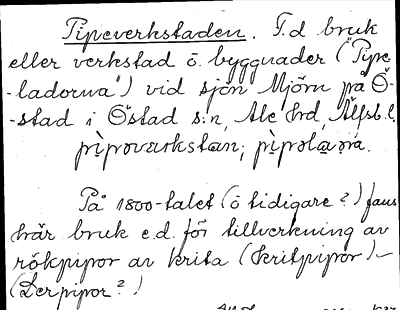 Pipeverkstaden. F.d bruk
eller verkstad o. byggnader ("Pipe
-ladorna") vid sjön Mjörn på Ö-
-stad i Östad s:n, Ale hrd, Älfsb. l.
På 1800-talet (o tidigare?) fans
här bruk e.d. för tillverkning av
rökpipor av krita (kritpipor) –
(Lerpipor?)